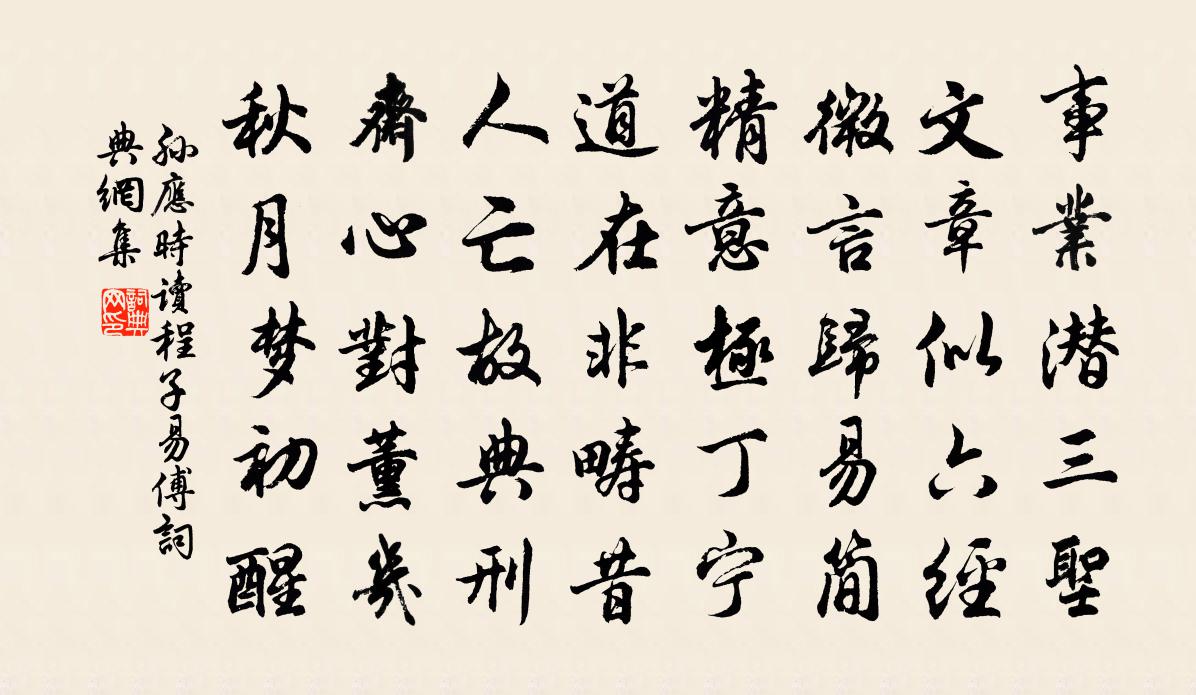 事業潜三聖
文章似六經
微言歸易簡
精意極丁宁
道在非疇昔
人亡故典刑
齋心對薰幾
秋月梦初醒
孙應時讀程子易傅詞
典網集
詞典
网印